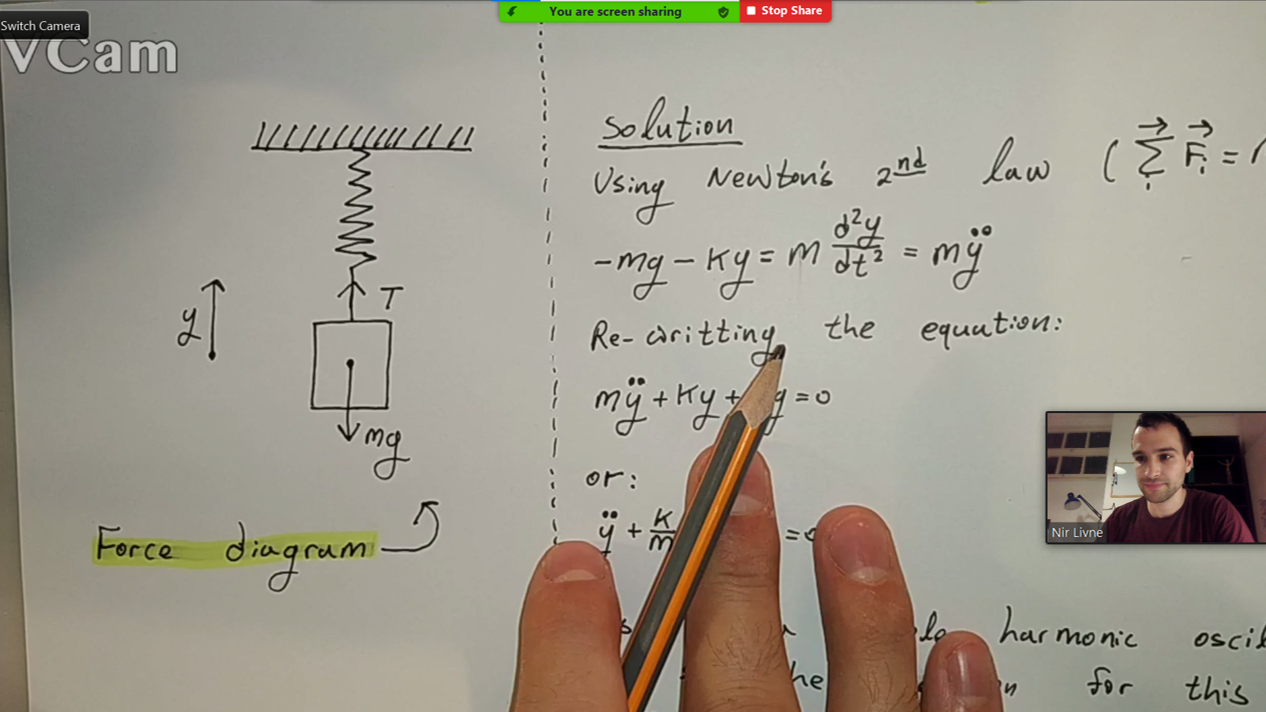 Switch Camera
You are screen sharing
Stop Share
VCam
y
T
mg
Force diagram
Solution
Using Newton's 2nd law ( Σ F⃗i =
-mg - Ky = m d²y/dt² = mÿ
Re-writting the equation:
mÿ + Ky + g = 0
or:
ÿ + K/m = 0
harmonic
for this
Nir Livne